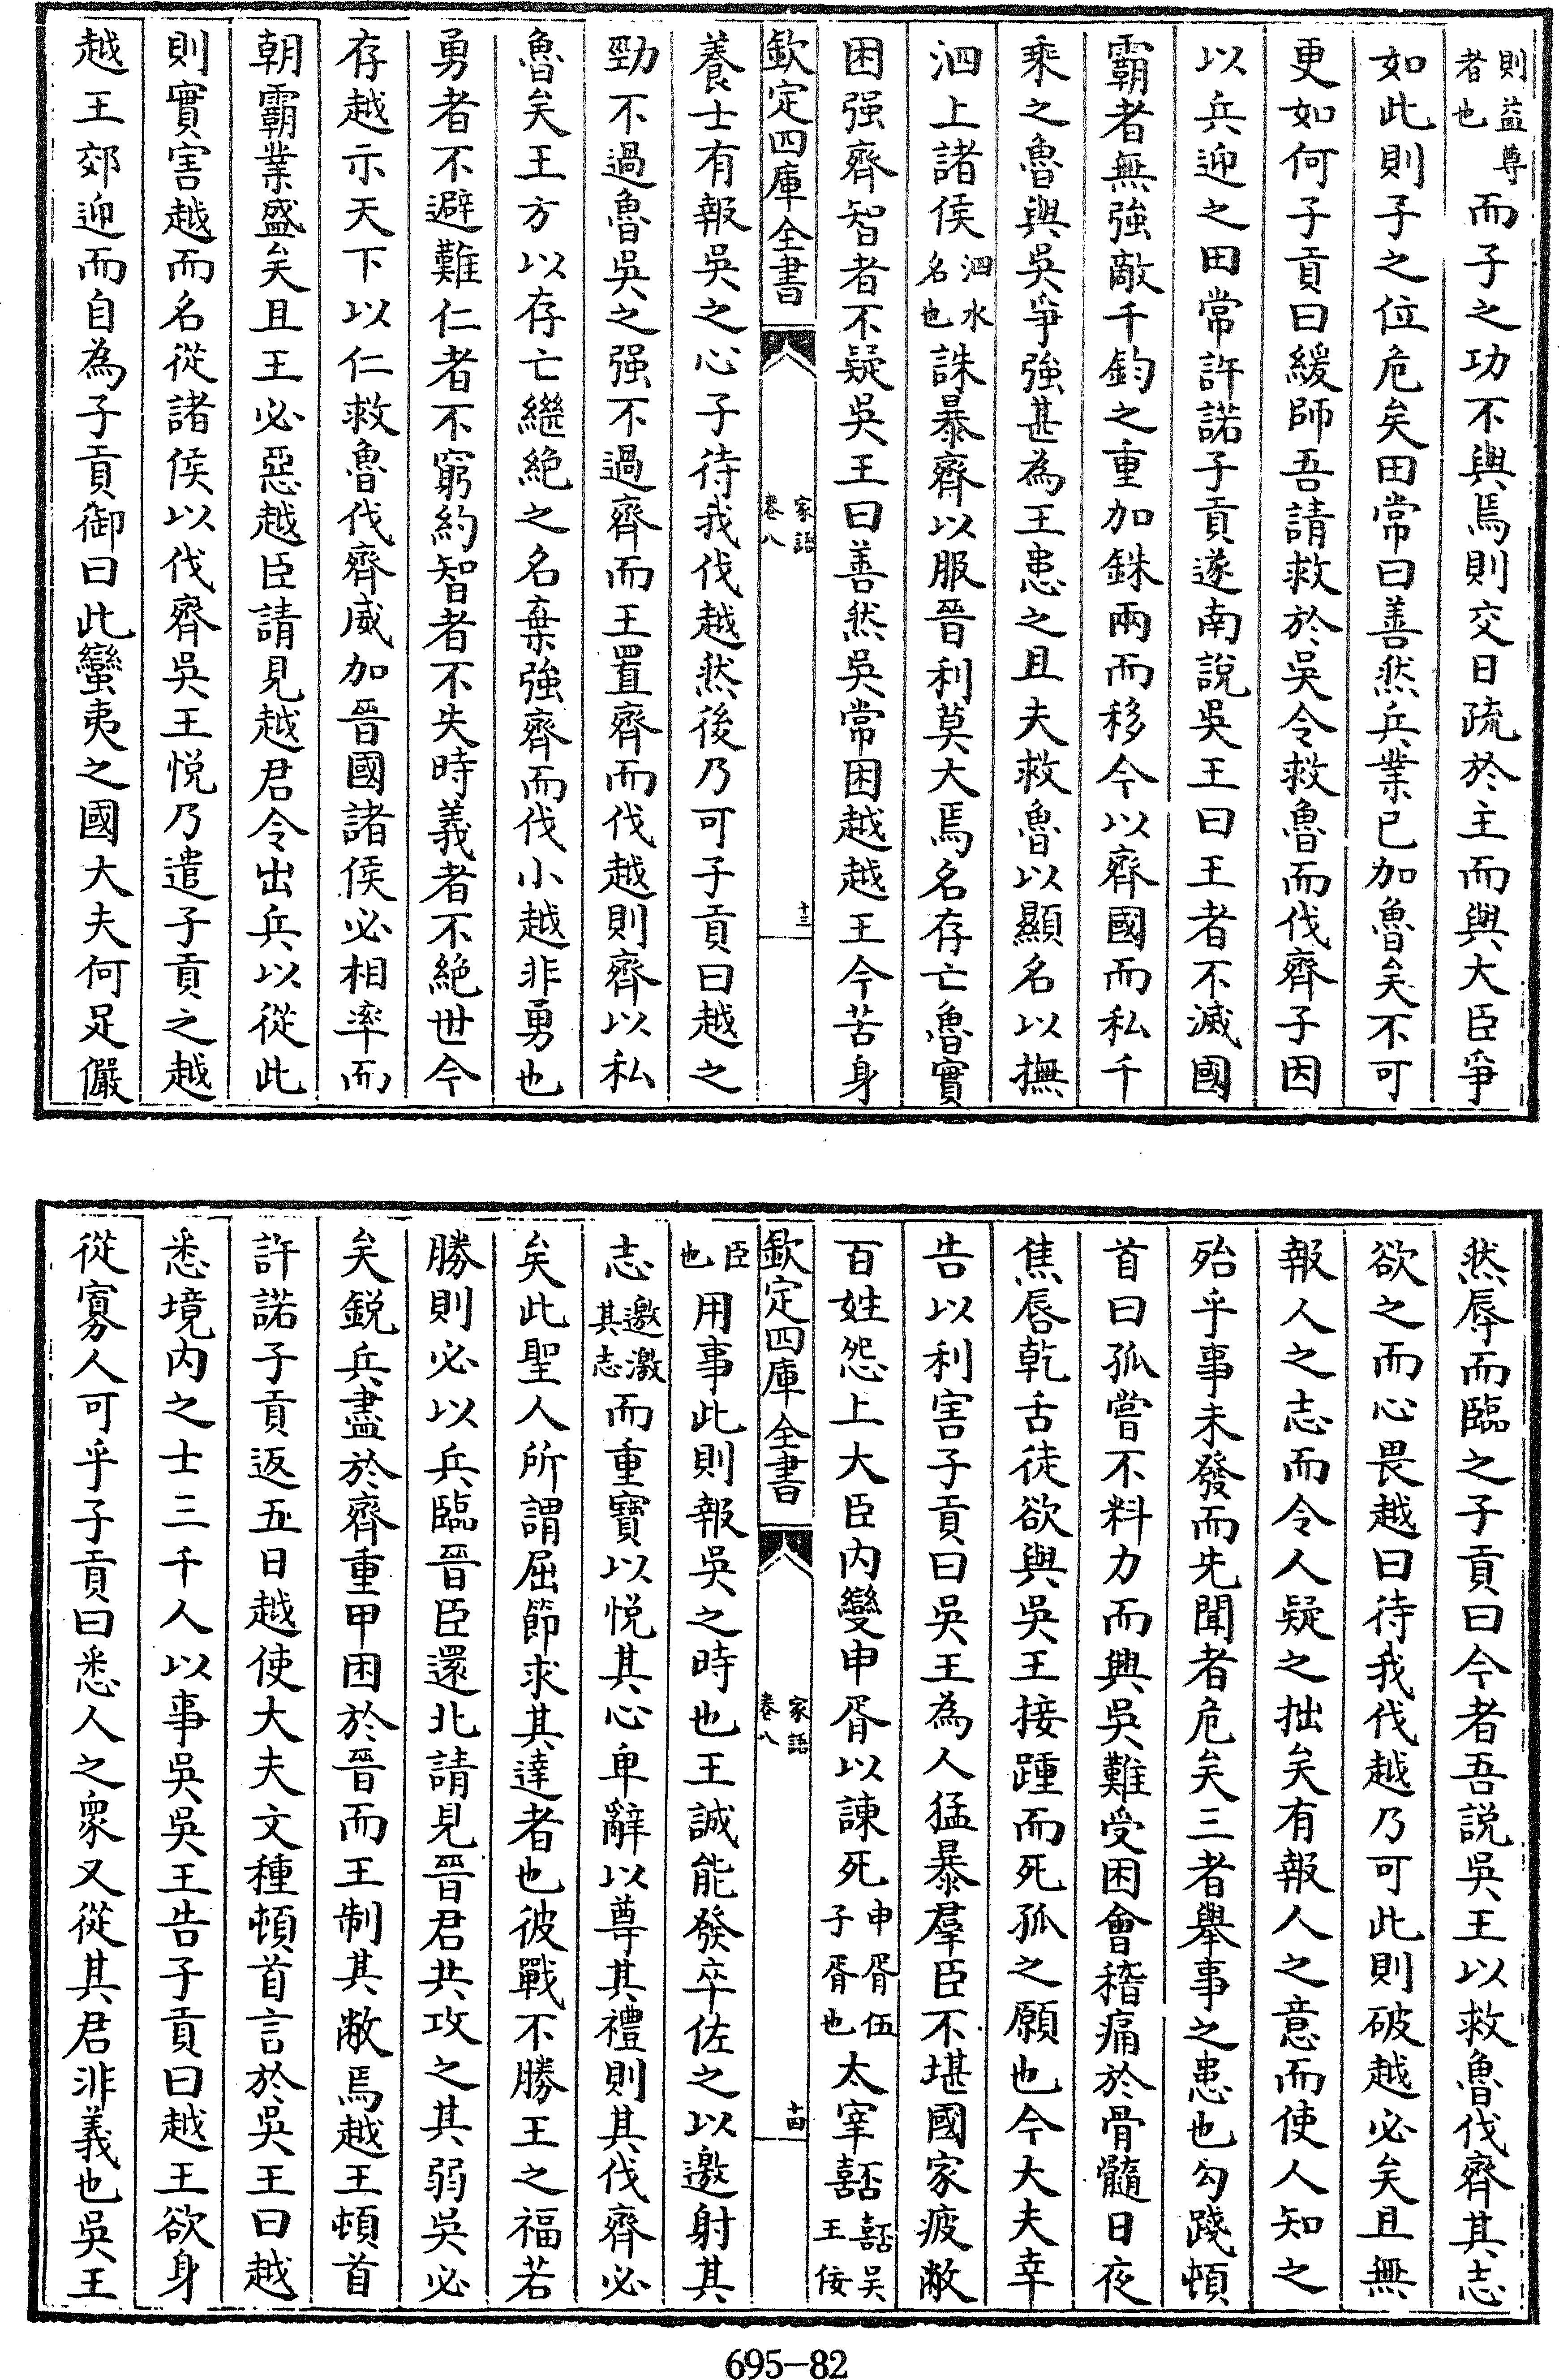 則益尊者也而子之功不與焉則交日疏於主而與大臣爭
如此則子之位危矣田常曰善然兵業已加魯矣不可
更如何子貢曰緩師吾請救於吳令救魯而伐齊子因
以兵迎之田常許諾子貢遂南說吳王曰王者不滅國
霸者無強敵千鈞之重加銖兩而移今以齊國而私千
乘之魯與吳爭強甚為王患之且夫救魯以顯名以撫
泗上諸侯泗水名也誅暴齊以服晉利莫大焉名存亡魯實
困强齊智者不疑吳王曰善然吳常困越越王今苦身
欽定四庫全書 家語卷八 十三
養士有報吳之心子待我伐越然後乃可子貢曰越之
勁不過魯吳之强不過齊而王置齊而伐越則齊以私
魯矣王方以存亡繼絶之名棄強齊而伐小越非勇也
勇者不避難仁者不窮約智者不失時義者不絶世今
存越示天下以仁救魯伐齊威加晉國諸侯必相率而
朝霸業盛矣且王必惡越臣請見越君令出兵以從此
則實害越而名從諸侯以伐齊吳王悅乃遣子貢之越
越王郊迎而自為子貢御曰此蠻夷之國大夫何足儼
然辱而臨之子貢曰今者吾説吳王以救魯伐齊其志
欲之而心畏越曰待我伐越乃可此則破越必矣且無
報人之志而令人疑之拙矣有報人之意而使人知之
殆乎事未發而先聞者危矣三者舉事之患也勾踐頓
首曰孤嘗不料力而興吳難受困會稽痛於骨髓日夜
焦唇乾舌徒欲與吳王接踵而死孤之願也今大夫幸
告以利害子貢曰吳王為人猛暴羣臣不堪國家疲敝
百姓怨上大臣内變申胥以諫死申胥伍子胥也太宰嚭嚭吳王佞
欽定四庫全書 家語卷八 十四
臣也用事此則報吳之時也王誠能發卒佐之以邀射其
志邀激其志而重寶以悅其心卑辭以尊其禮則其伐齊必
矣此聖人所謂屈節求其達者也彼戰不勝王之福若
勝則必以兵臨晉臣還北請見晉君共攻之其弱吳必
矣鋭兵盡於齊重甲困於晉而王制其敝焉越王頓首
許諾子貢返五日越使大夫文種頓首言於吳王曰越
悉境内之士三千人以事吳吳王告子貢曰越王欲身
從寡人可乎子貢曰悉人之衆又從其君非義也吳王
695-82